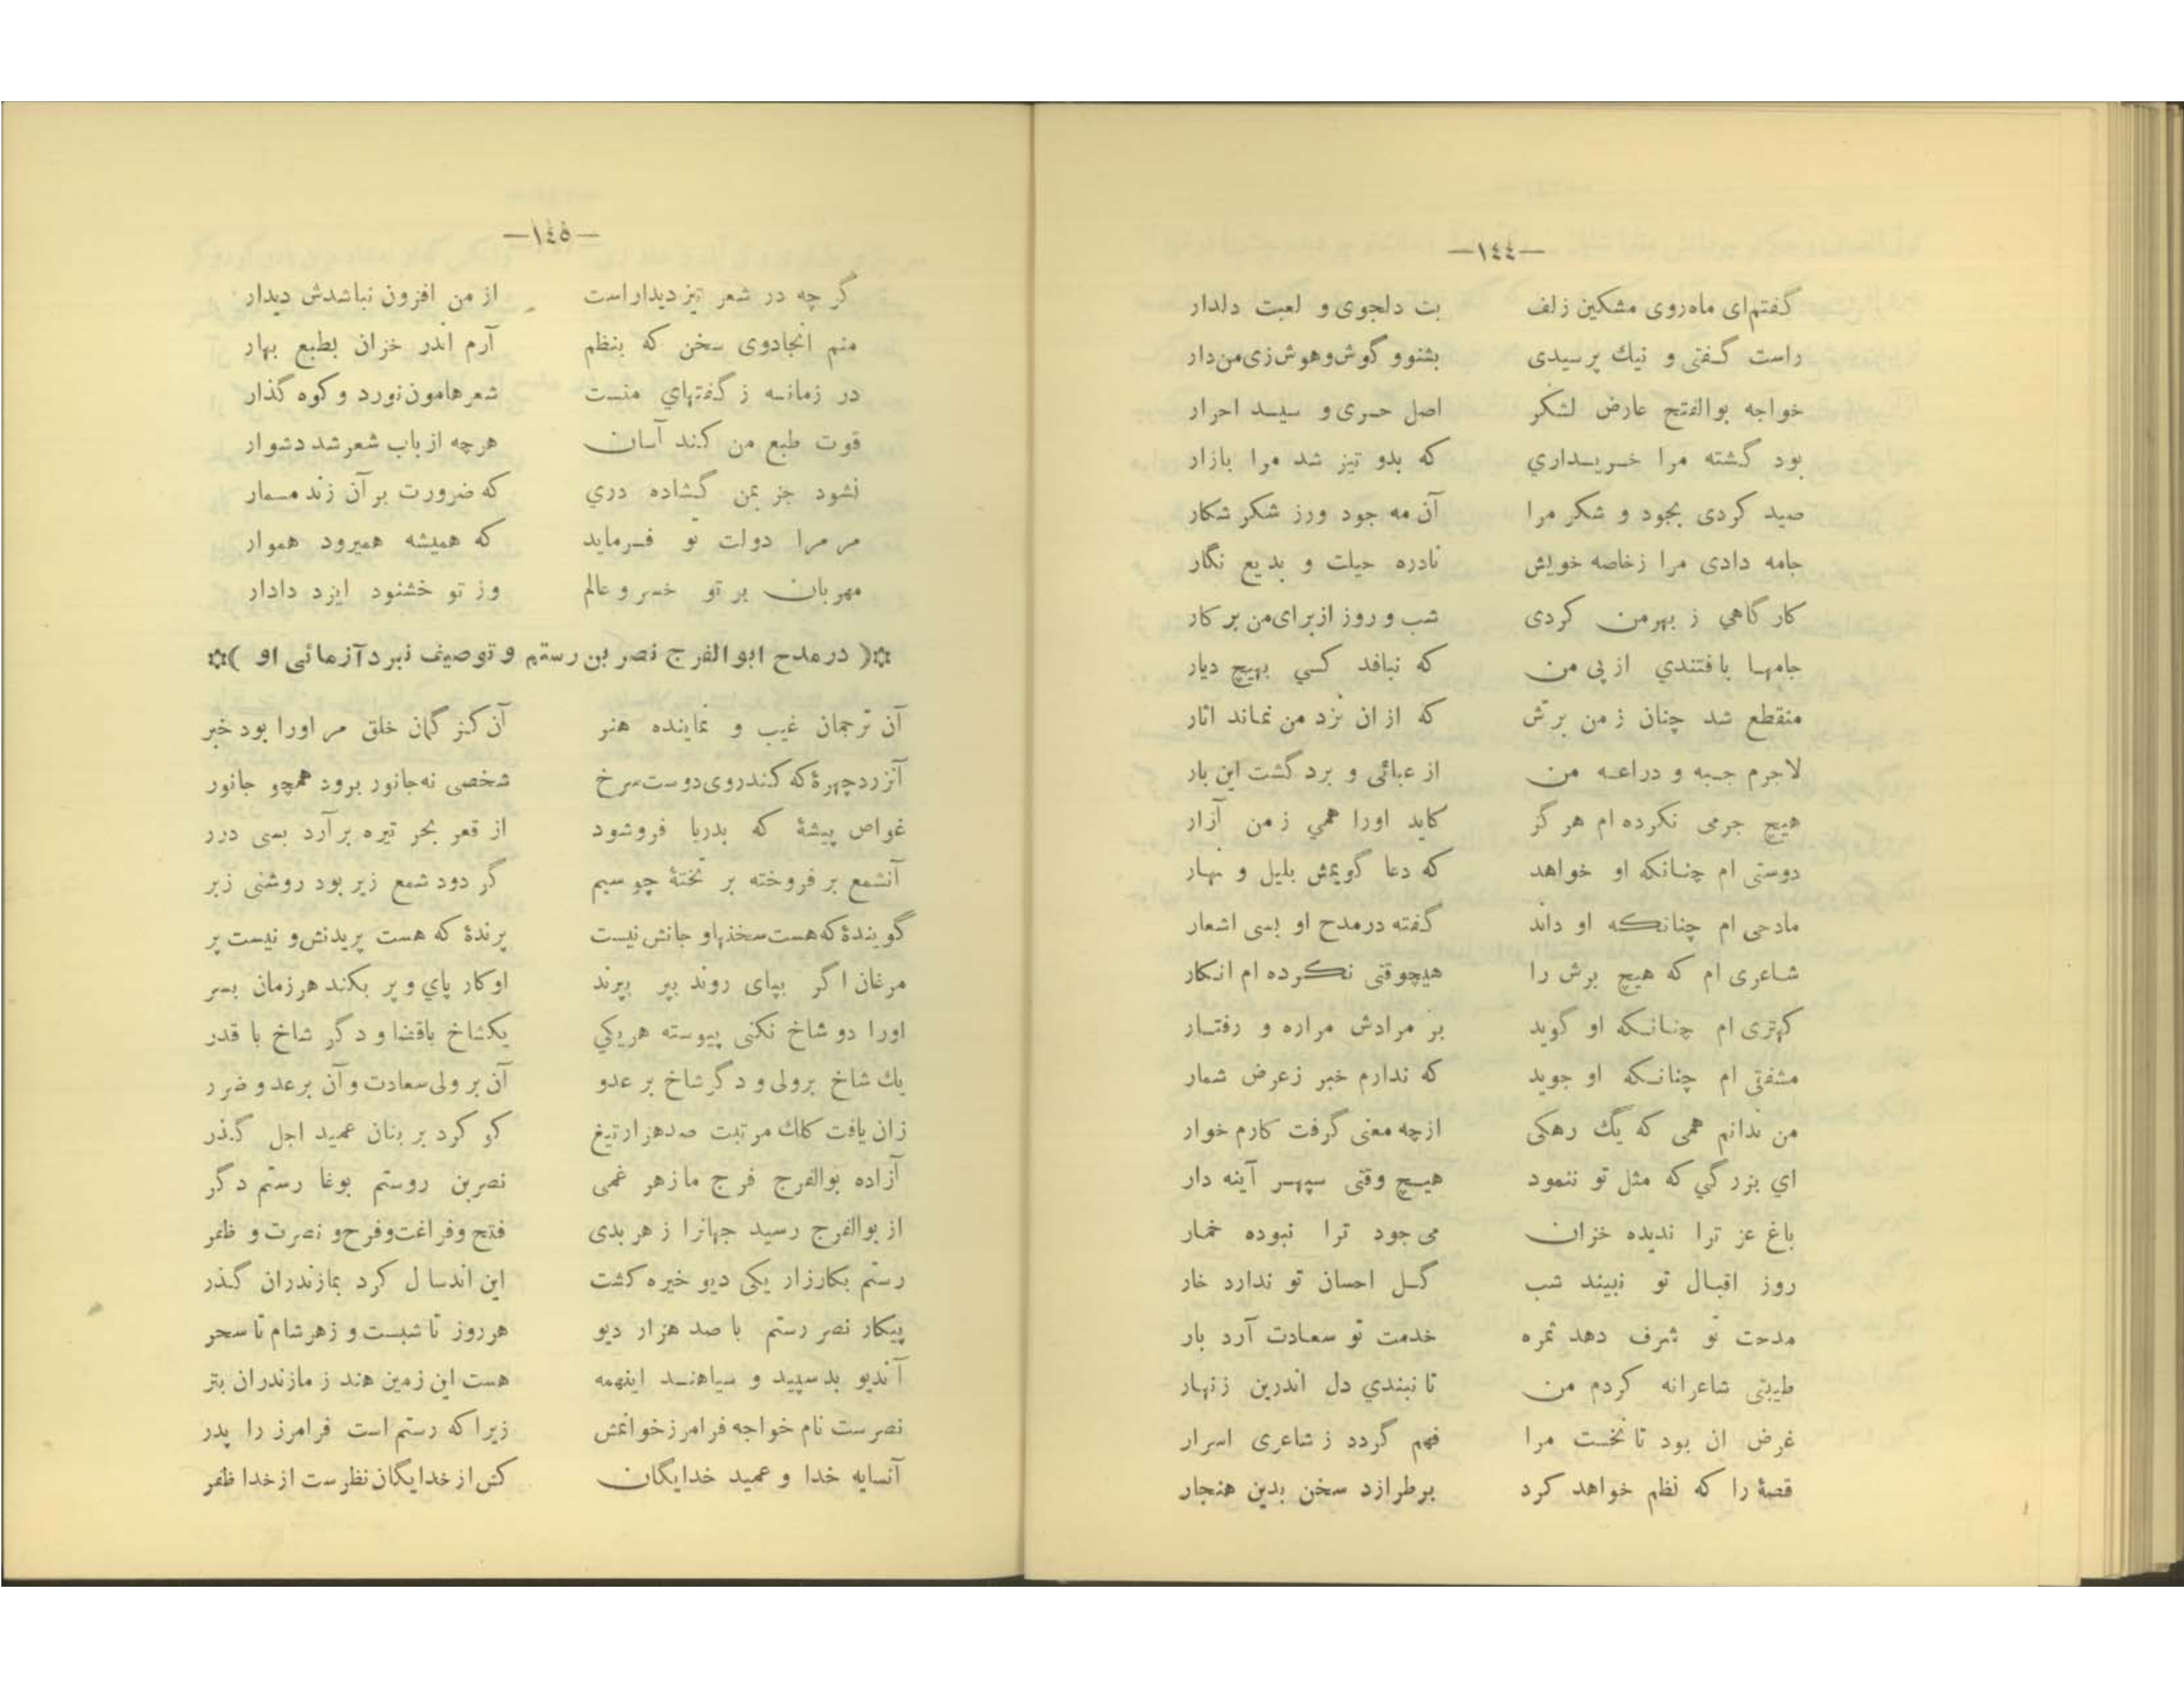 —١٤٤—
گفتم‌ای ماه‌روی مشکین زلف بت دلجوی و لعبت دلدار
راست گفتی و نیك پرسیدی بشنو و گوش‌وهوش‌زی‌من‌دار
خواجه بوالفتح عارض لشکر اصل حری و سید احرار
بود گشته مرا خریداري که بدو تیز شد مرا بازار
صید کردی بجود و شکر مرا آن مه جود ورز شکر شکار
جامه دادی مرا زخاصه خویش نادره حیلت و بدیع نگار
کار گاهي ز بهرمن کردی شب و روز ازبرای‌من بر کار
جامها بافتندي از پی من که نبافد کسي بهیچ دیار
منقطع شد چنان ز من برش که از ان نزد من نماند اثار
لاجرم جبه و دراعه من از عبائی و برد گشت این بار
هیچ جرمی نکرده ام هر گز کاید اورا همي ز من آزار
دوستی ام چنانکه او خواهد که دعا گویمش بلیل و نهار
مادحی ام چنانکه او داند گفته درمدح او بسی اشعار
شاعری ام که هیچ برش را هیچوقتی نکرده ام انکار
کهتری ام چنانکه او گوید بر مرادش مراره و رفتار
مشفتی ام چنانکه او جوید که ندارم خبر زعرض شمار
من ندانم همی که یك رهکی ازچه معنی گرفت کارم خوار
اي بزر گي که مثل تو ننمود هیچ وقتی سپهر آینه دار
باغ عز ترا ندیده خزان می جود ترا نبوده خمار
روز اقبال تو نبیند شب گل احسان تو ندارد خار
مدحت تو شرف دهد ثمره خدمت تو سعادت آرد بار
طیبتی شاعرانه کردم من تا نبندي دل اندرین زنهار
غرض ان بود تا نخست مرا فهم گردد ز شاعری اسرار
قصهٔ را که نظم خواهد کرد برطرازد سخن بدین هنجار
—١٤٥—
گر چه در شعر تیز دیداراست از من افزون نباشدش دیدار
منم انجادوی سخن که بنظم آرم اندر خزان بطبع بهار
در زمانه ز گفتهاي منست شعر هامون‌نورد و کوه گذار
قوت طبع من کند آسان هرچه از باب شعر شد دشوار
نشود جز بمن گشاده دري که ضرورت بر آن زند مسمار
مر مرا دولت تو فرماید که همیشه همیرود هموار
مهربان بر تو خسرو عالم وز تو خشنود ایزد دادار
✩( درمدح ابوالفرج نصر بن رستم و توصیف نبرد آزمائی او )✩
آن ترجمان غیب و نماینده هنر آن کز گمان خلق مر اورا بود خبر
آنزردچهرهٔ که کندروی‌دوست‌سرخ شخصی نه‌جانور برود همچو جانور
غواص پیشهٔ که بدریا فروشود از قعر بحر تیره بر آرد بسی درر
آنشمع بر فروخته بر تختهٔ چو سیم گر دود شمع زیر بود روشنی زبر
گویندهٔ که‌هست‌سخنهاو جانش‌نیست پرندهٔ که هست پریدنش‌و نیست پر
مرغان اگر بپای روند بپر بپرند اوکار پاي و پر بکند هرزمان بسر
اورا دو شاخ نکنی پیوسته هریکي یکشاخ باقضا و دگر شاخ با قدر
یك شاخ برولی و دگرشاخ بر عدو آن بر ولی‌سعادت و آن برعدو ضرر
زان یافت کلك مرتبت صدهزارتیغ کو کرد بر بنان عمید اجل گذر
آزاده بوالفرج فرج مازهر غمی نصربن روستم بوغا رستم دگر
از بوالفرج رسید جهانرا ز هر بدی فتح وفراغت‌وفرح‌و نصرت و ظفر
رستم بکارزار یکی دیو خیره کشت این اندسال کرد بمازندران گذر
پیکار نصر رستم با صد هزار دیو هرروز تا شبست و زهرشام تا سحر
آندیو بد سپید و سیاهند اینهمه هست این زمین هند ز مازندران بتر
نصرست نام خواجه فرامرزخوانمش زیراکه رستم است فرامرز را پدر
آنسایه خدا و عمید خدایگان کش از خدایگان نظرست ازخدا ظفر